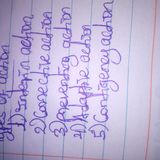 types of action
1) Interim action
2) Corrective action
3) Preventing action
4) Adaptive action
5) Contigency action